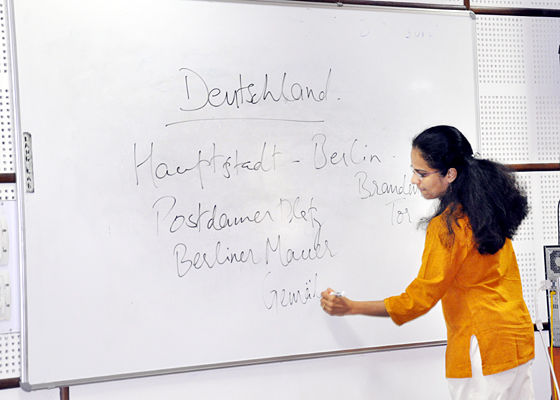 Deutschland.
Hauptstadt - Berlin.
Branden
Tor
Postdamer Pletz
Berliner Mauer
Gemäl